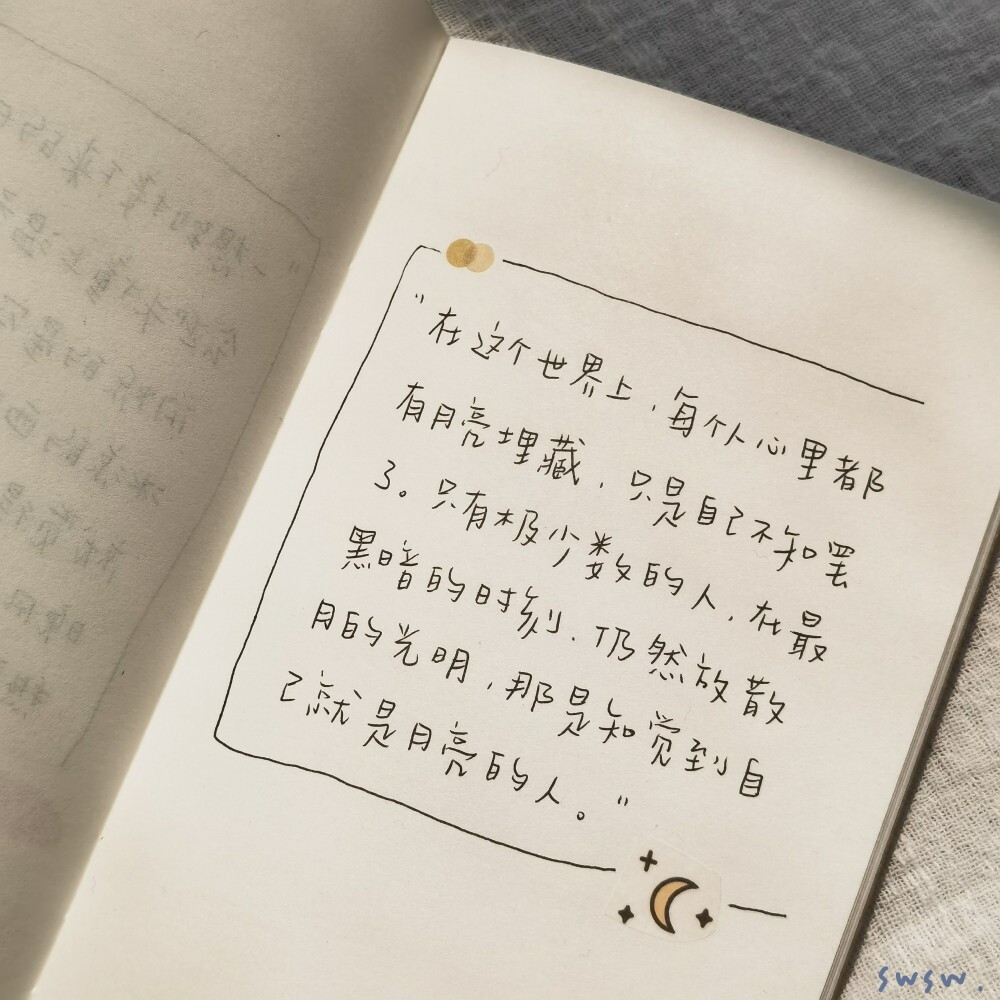 "在这个世界上，每个人心里都
有月亮埋藏，只是自己不知罢
了。只有极少数的人，在最
黑暗的时刻，仍然放散
月的光明，那是知觉到自
己就是月亮的人。"
swsw.